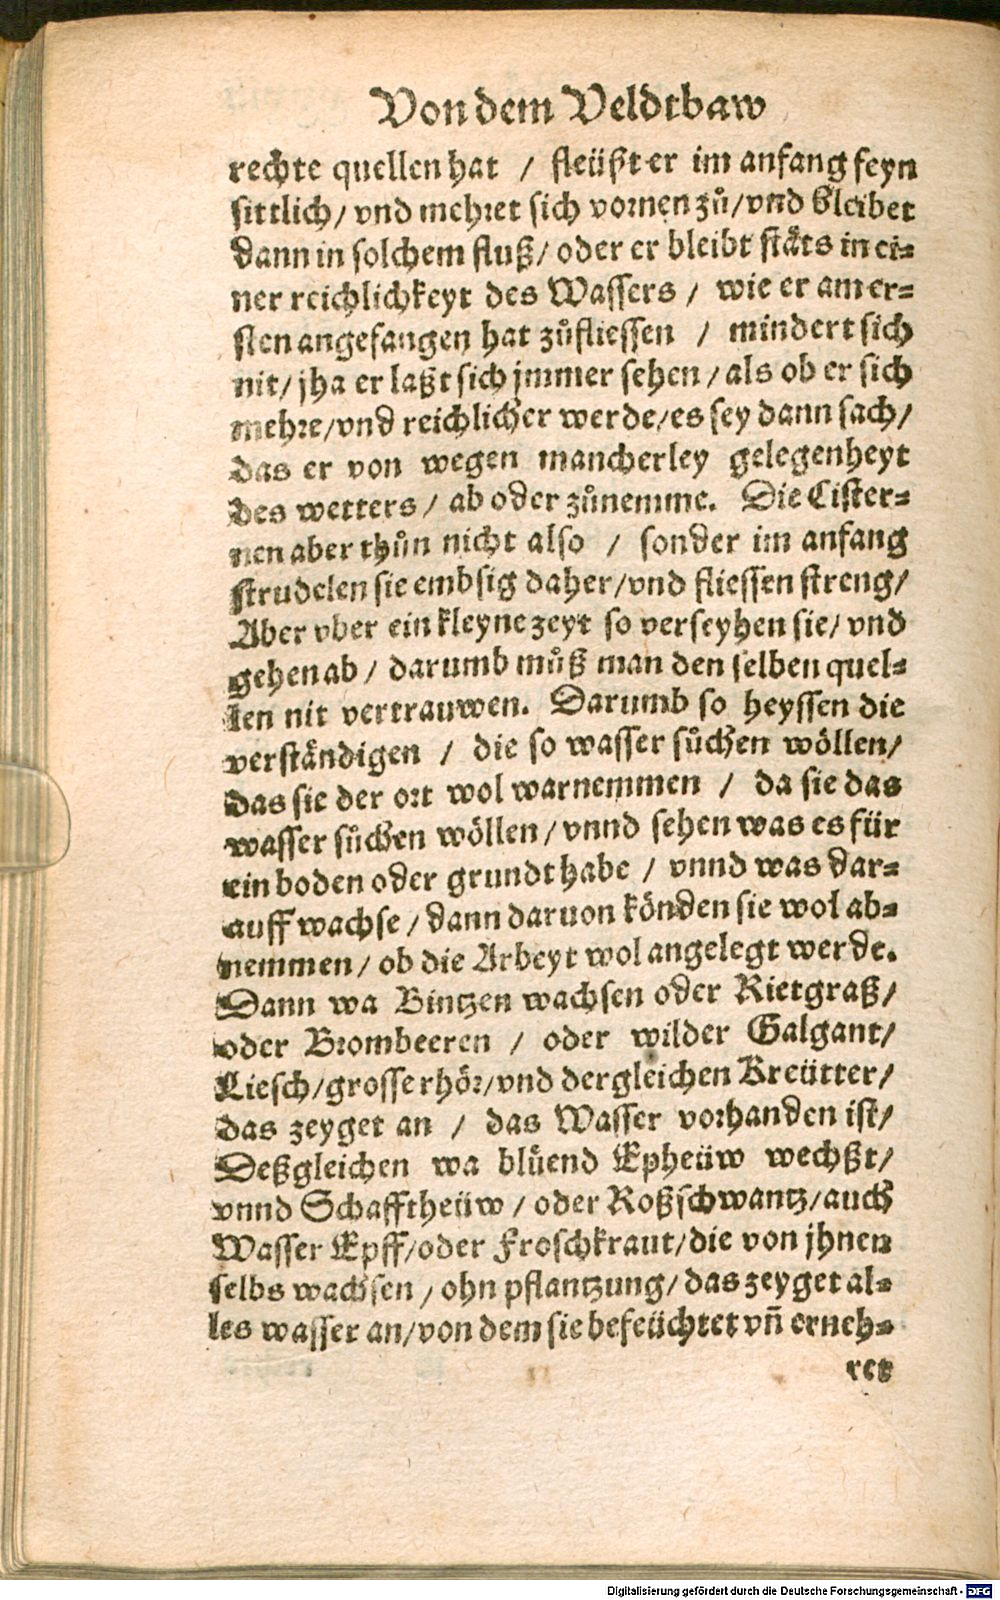 Von dem Veldtbaw
rechte quellen hat / fleüßt er im anfang feyn
sittlich / vnd mehret sich vornen zů / vnd bleibet
dann in solchem fluß / oder er bleibt stäts in ei-
ner reichlichkeyt des Wassers / wie er am er-
sten angefangen hat zůfliessen / mindert sich
nit / jha er laßt sich jmmer sehen / als ob er sich
mehre / vnd reichlicher werde / es sey dann sach /
das er von wegen mancherley gelegenheyt
des wetters / ab oder zůnemme. Die Cister-
nen aber thůn nicht also / sonder im anfang
strudelen sie embsig daher / vnd fliessen streng /
Aber vber ein kleyne zeyt so verseyhen sie / vnd
gehen ab / darumb můß man den selben quel-
len nit vertrauwen. Darumb so heyssen die
verständigen / die so wasser sůchen wöllen /
das sie der ort wol warnemmen / da sie das
wasser sůchen wöllen / vnnd sehen was es für
ein boden oder grundt habe / vnnd was dar-
auff wachse / dann daruon könden sie wol ab-
nemmen / ob die Arbeyt wol angelegt werde.
Dann wa Bintzen wachsen oder Rietgraß /
oder Brombeeren / oder wilder Galgant /
Liesch / grosse rhör / vnd dergleichen Kreütter /
das zeyget an / das Wasser vorhanden ist /
Deßgleichen wa blüend Epheüw wechßt /
vnnd Schafftheüw / oder Roßschwantz / auch
Wasser Epff / oder Froschkraut / die von jhnen
selbs wachsen / ohn pflantzung / das zeyget al-
les wasser an / von dem sie befeüchtet vñ erneh-
ret
Digitalisierung gefördert durch die Deutsche Forschungsgemeinschaft - DFG